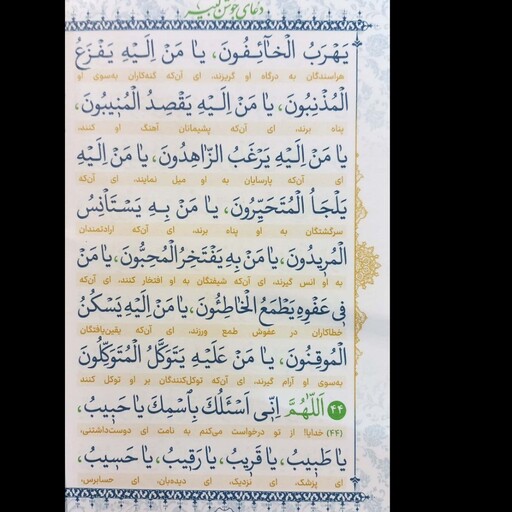 دعای جوشن کبیر
يَهْرَبُ الْخَآئِفُونَ، يا مَنْ اِلَيْهِ يَفْزَعُ
هراسندگان به درگاه او گریزند، ای آن‌که گنه‌کاران به‌سوی او
الْمُذْنِبُونَ، يا مَنْ اِلَيْهِ يَقْصِدُ الْمُنيبُونَ،
پناه برند، ای آن‌که پشیمانان آهنگ او کنند،
يا مَنْ اِلَيْهِ يَرْغَبُ الزّاهِدُونَ، يا مَنْ اِلَيْهِ
ای آن‌که پارسایان به او میل نمایند، ای آن‌که
يَلْجَاُ الْمُتَحَيِّرُونَ، يا مَنْ بِهِ يَسْتَأْنِسُ
سرگشتگان به او پناه برند، ای آن‌که ارادتمندان
الْمُريدُونَ، يا مَنْ بِهِ يَفْتَخِرُ الْمُحِبُّونَ، يا مَنْ
به او انس گیرند، ای آن‌که شیفتگان به او افتخار کنند، ای آن‌که
فى عَفْوِهِ يَطْمَعُ الْخاطِئُونَ، يا مَنْ اِلَيْهِ يَسْكُنُ
خطاکاران در عفوش طمع ورزند، ای آن‌که یقین‌یافتگان
الْمُوقِنُونَ، يا مَنْ عَلَيْهِ يَتَوَكَّلُ الْمُتَوَكِّلُونَ
به‌سوی او آرام گیرند، ای آن‌که توکل‌کنندگان بر او توکل کنند
۴۴ اَللّٰهُمَّ اِنّى اَسْئَلُكَ بِاسْمِكَ يا حَبيبُ،
(۴۴) خدایا! از تو درخواست می‌کنم به نامت ای دوست‌داشتنی،
يا طَبيبُ، يا قَريبُ، يا رَقيبُ، يا حَسيبُ،
ای پزشک، ای نزدیک، ای دیده‌بان، ای حسابرس،